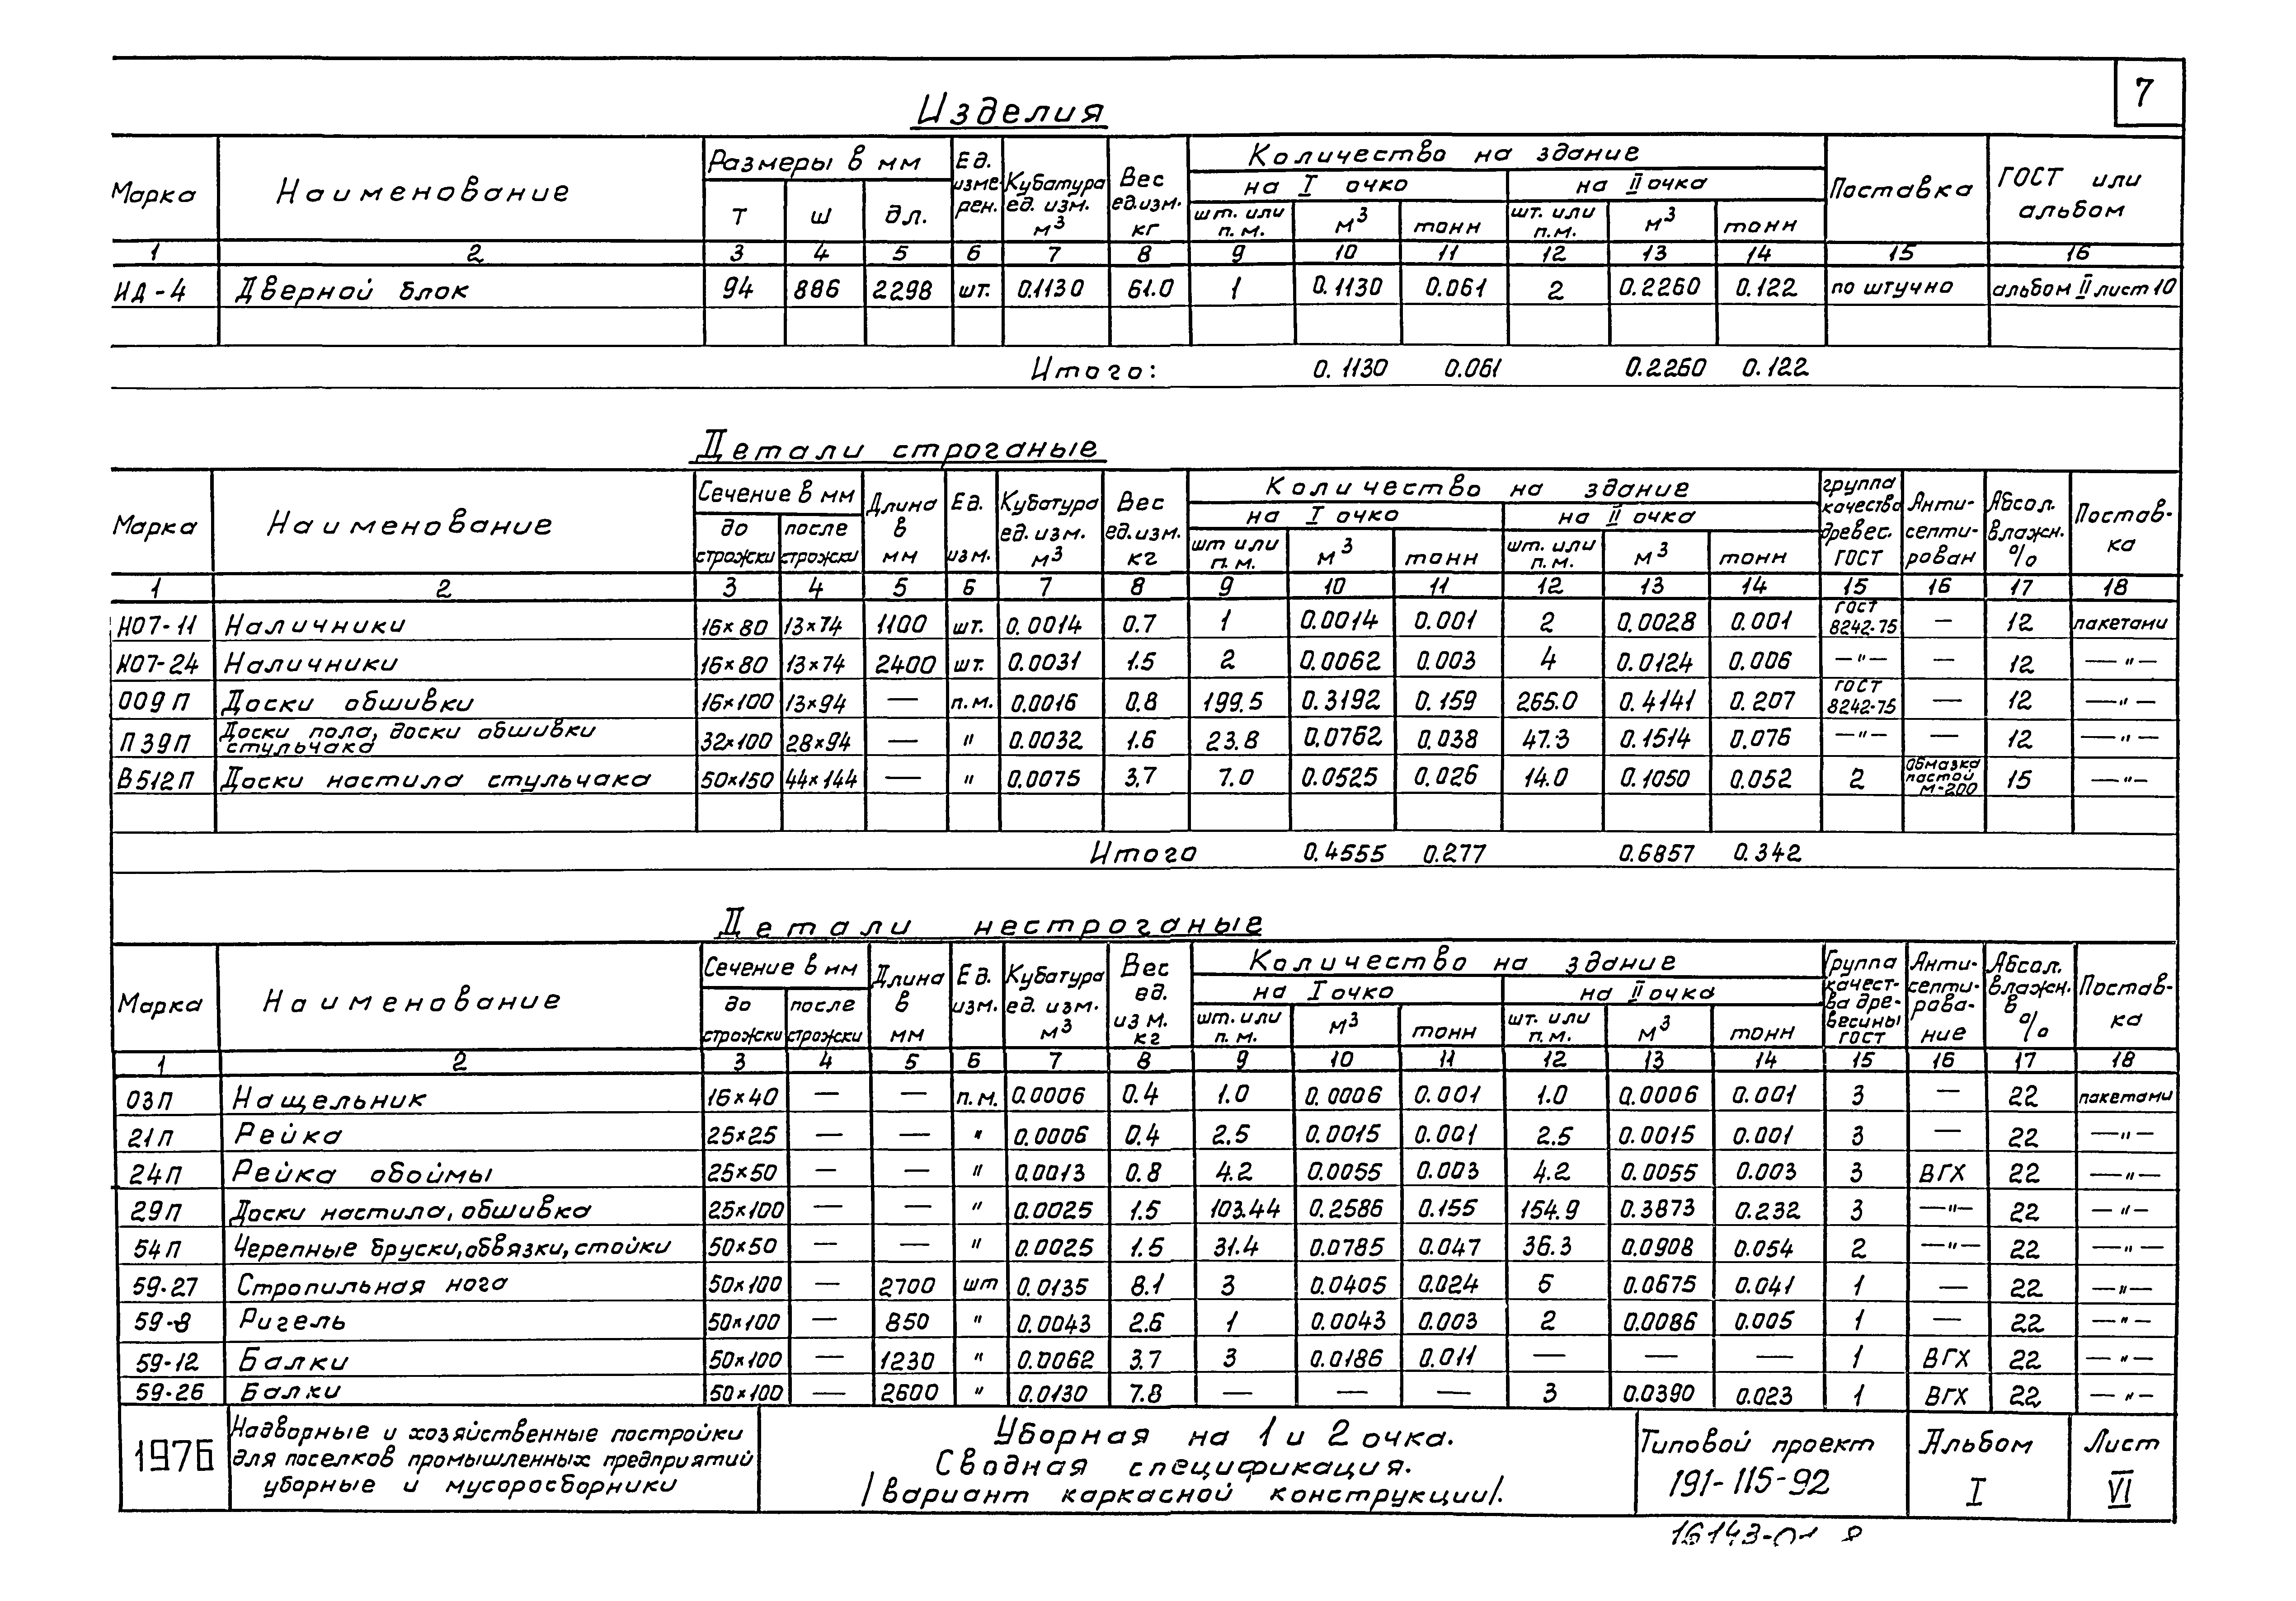 7
Изделия
Марка | Наименование | Размеры в мм | Ед. измерен. | Кубатура ед. изм. м³ | Вес ед. изм. кг | Количество на здание | Поставка | ГОСТ или альбом
Т | Ш | дл. | на I очко | на II очка
шт. или п.м. | м³ | тонн | шт. или п.м. | м³ | тонн
1 | 2 | 3 | 4 | 5 | 6 | 7 | 8 | 9 | 10 | 11 | 12 | 13 | 14 | 15 | 16
ИД-4 | Дверной блок | 94 | 886 | 2298 | шт. | 0.1130 | 61.0 | 1 | 0.1130 | 0.061 | 2 | 0.2260 | 0.122 | по штучно | альбом II лист 10
Итого: 0.1130 0.061 0.2260 0.122
Детали строганые
Марка | Наименование | Сечение в мм | Длина в мм | Ед. изм. | Кубатура ед. изм. м³ | Вес ед. изм. кг | Количество на здание | группа качества древес. ГОСТ | Анти-септи-рован | Абсол. влажн. % | Постав-ка
до строжки | после строжки | на I очко | на II очка
шт или п.м. | м³ | тонн | шт. или п.м. | м³ | тонн
1 | 2 | 3 | 4 | 5 | 6 | 7 | 8 | 9 | 10 | 11 | 12 | 13 | 14 | 15 | 16 | 17 | 18
Н07-11 | Наличники | 16×80 | 13×74 | 1100 | шт. | 0.0014 | 0.7 | 1 | 0.0014 | 0.001 | 2 | 0.0028 | 0.001 | гост 8242-75 | — | 12 | пакетами
Н07-24 | Наличники | 16×80 | 13×74 | 2400 | шт. | 0.0031 | 1.5 | 2 | 0.0062 | 0.003 | 4 | 0.0124 | 0.006 | —"— | — | 12 | —"—
009П | Доски обшивки | 16×100 | 13×94 | — | п.м. | 0.0016 | 0.8 | 199.5 | 0.3192 | 0.159 | 265.0 | 0.4141 | 0.207 | гост 8242-75 | — | 12 | —"—
П39П | Доски пола, доски обшивки стульчака | 32×100 | 28×94 | — | " | 0.0032 | 1.6 | 23.8 | 0.0762 | 0.038 | 47.3 | 0.1514 | 0.076 | —"— | — | 12 | —"—
В512П | Доски настила стульчака | 50×150 | 44×144 | — | " | 0.0075 | 3.7 | 7.0 | 0.0525 | 0.026 | 14.0 | 0.1050 | 0.052 | 2 | обмазка пастой М-200 | 15 | —"—
Итого 0.4555 0.277 0.6857 0.342
Детали нестроганые
Марка | Наименование | Сечение в мм | Длина в мм | Ед. изм. | Кубатура ед. изм. м³ | Вес ед. изм. кг | Количество на здание | Группа качест-ва дре-весины ГОСТ | Анти-септи-рова-ние | Абсол. влажн. в % | Постав-ка
до строжки | после строжки | на I очко | на II очка
шт. или п.м. | м³ | тонн | шт. или п.м. | м³ | тонн
1 | 2 | 3 | 4 | 5 | 6 | 7 | 8 | 9 | 10 | 11 | 12 | 13 | 14 | 15 | 16 | 17 | 18
03П | Нащельник | 16×40 | — | — | п.м. | 0.0006 | 0.4 | 1.0 | 0.0006 | 0.001 | 1.0 | 0.0006 | 0.001 | 3 | — | 22 | пакетами
21П | Рейка | 25×25 | — | — | " | 0.0006 | 0.4 | 2.5 | 0.0015 | 0.001 | 2.5 | 0.0015 | 0.001 | 3 | — | 22 | —"—
24П | Рейка обоймы | 25×50 | — | — | " | 0.0013 | 0.8 | 4.2 | 0.0055 | 0.003 | 4.2 | 0.0055 | 0.003 | 3 | ВГХ | 22 | —"—
29П | Доски настила, обшивка | 25×100 | — | — | " | 0.0025 | 1.5 | 103.44 | 0.2586 | 0.155 | 154.9 | 0.3873 | 0.232 | 3 | —"— | 22 | —"—
54П | Черепные бруски, обвязки, стойки | 50×50 | — | — | " | 0.0025 | 1.5 | 31.4 | 0.0785 | 0.047 | 36.3 | 0.0908 | 0.054 | 2 | —"— | 22 | —"—
59-27 | Стропильная нога | 50×100 | — | 2700 | шт | 0.0135 | 8.1 | 3 | 0.0405 | 0.024 | 5 | 0.0675 | 0.041 | 1 | — | 22 | —"—
59-8 | Ригель | 50×100 | — | 850 | " | 0.0043 | 2.6 | 1 | 0.0043 | 0.003 | 2 | 0.0086 | 0.005 | 1 | — | 22 | —"—
59-12 | Балки | 50×100 | — | 1230 | " | 0.0062 | 3.7 | 3 | 0.0186 | 0.011 | — | — | — | 1 | ВГХ | 22 | —"—
59-26 | Балки | 50×100 | — | 2600 | " | 0.0130 | 7.8 | — | — | — | 3 | 0.0390 | 0.023 | 1 | ВГХ | 22 | —"—
1976
Надворные и хозяйственные постройки
для поселков промышленных предприятий
уборные и мусоросборники
Уборная на 1 и 2 очка.
Сводная спецификация.
/вариант каркасной конструкции/.
Типовой проект
191-115-92
Альбом
I
Лист
VI
16143-01 8